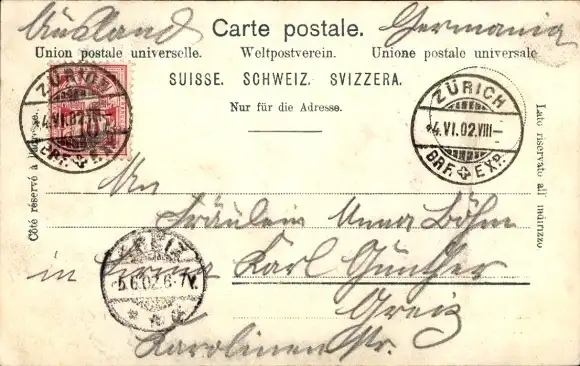 Ausland Carte postale. Germania
Union postale universelle. Weltpostverein. Unione postale universale
SUISSE. SCHWEIZ. SVIZZERA.
Nur für die Adresse.
Côté réservé à l'adresse.
Lato riservato all' indirizzo
ZÜRICH
4.VI.02.VIII–
BRF. EXP.
ZÜRICH
4.VI.02.VIII–
BRF. EXP.
10
An
Fräulein Anna Böhm
in Firma Karl Günther
Greiz
Karolinenstr.
GREIZ
5.6.02.6-7V.